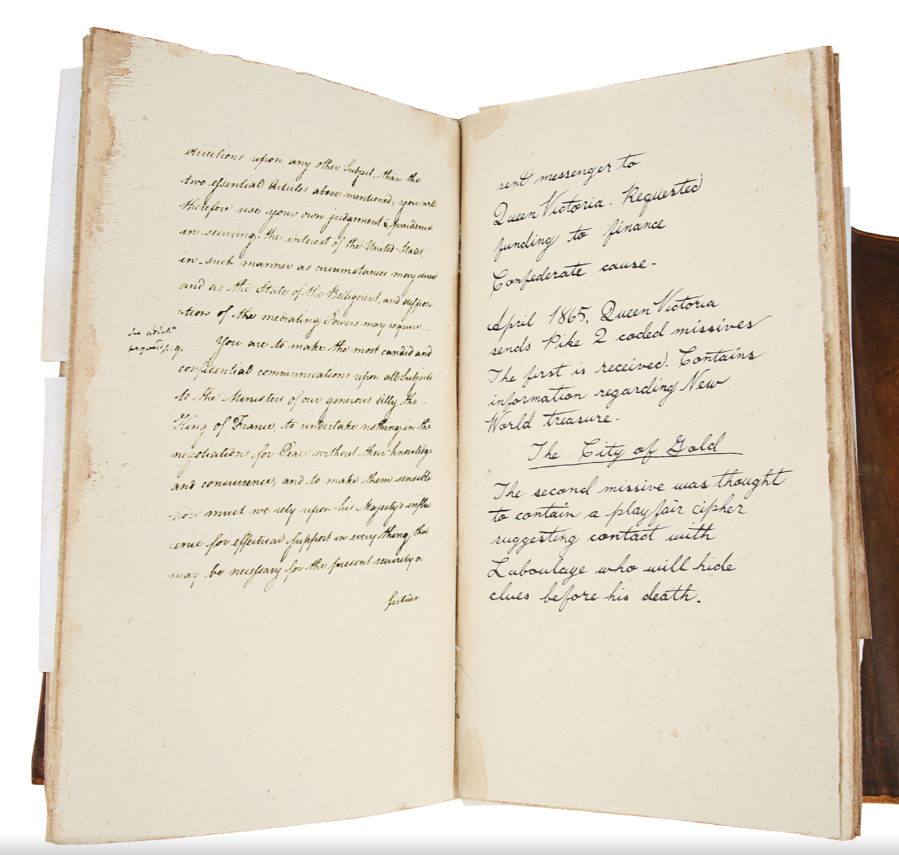 directions upon any other Subject, than the
two essential Articles above mentioned; you will
therefore use your own judgement & prudence
in securing the interest of the United States
in such manner as circumstances may direct
and as the State of the Belligerent, and disposi
-tion of the mediating Powers may require
You are to make the most candid and
confidential communications upon all Subjects
to the Ministers of our generous Ally the
King of France, to undertake nothing in the
negotiations for Peace without their knowledge
and concurrence, and to make them sensible
how much we rely upon his Majesty's influ
ence for effectual support in every thing that
may be necessary for the present security o
sent messenger to
Queen Victoria. Requested
funding to finance
Confederate cause.
April 1865. Queen Victoria
sends Pike 2 coded missives
The first is received. Contains
information regarding New
World treasure.
The City of Gold
The second missive was thought
to contain a playfair cipher
suggesting contact with
Laboulaye who will hide
clues before his death.